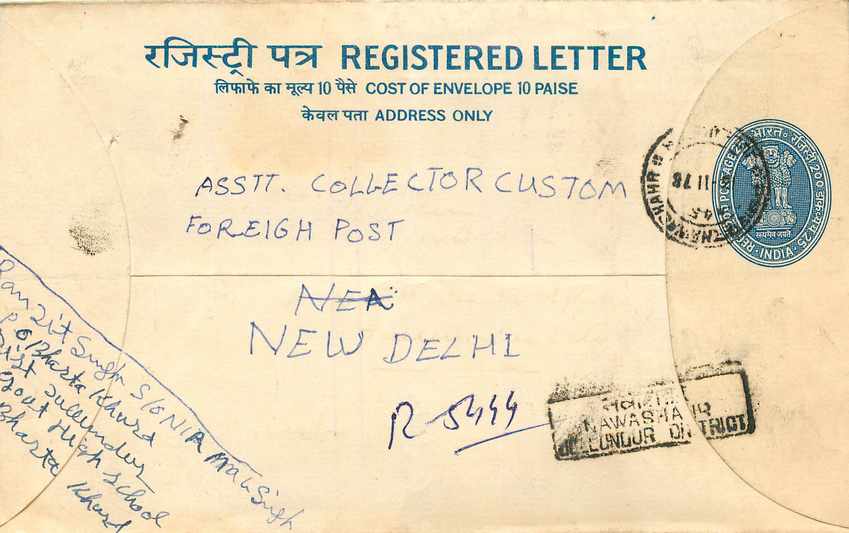 रजिस्ट्री पत्र REGISTERED LETTER
लिफाफे का मूल्य 10 पैसे COST OF ENVELOPE 10 PAISE
केवल पता ADDRESS ONLY
भारत
INDIA
सत्यमेव जयते
ASSTT. COLLECTOR CUSTOM
FOREIGH POST
NEA
NEW DELHI
R 5444
NAWASHA
JULLUNDUR DISTRICT
Ranjit Singh S/O Nirmal Singh
P O Bharta Khurd
Dist Jullundur
Gout High School
Bharta Khurd